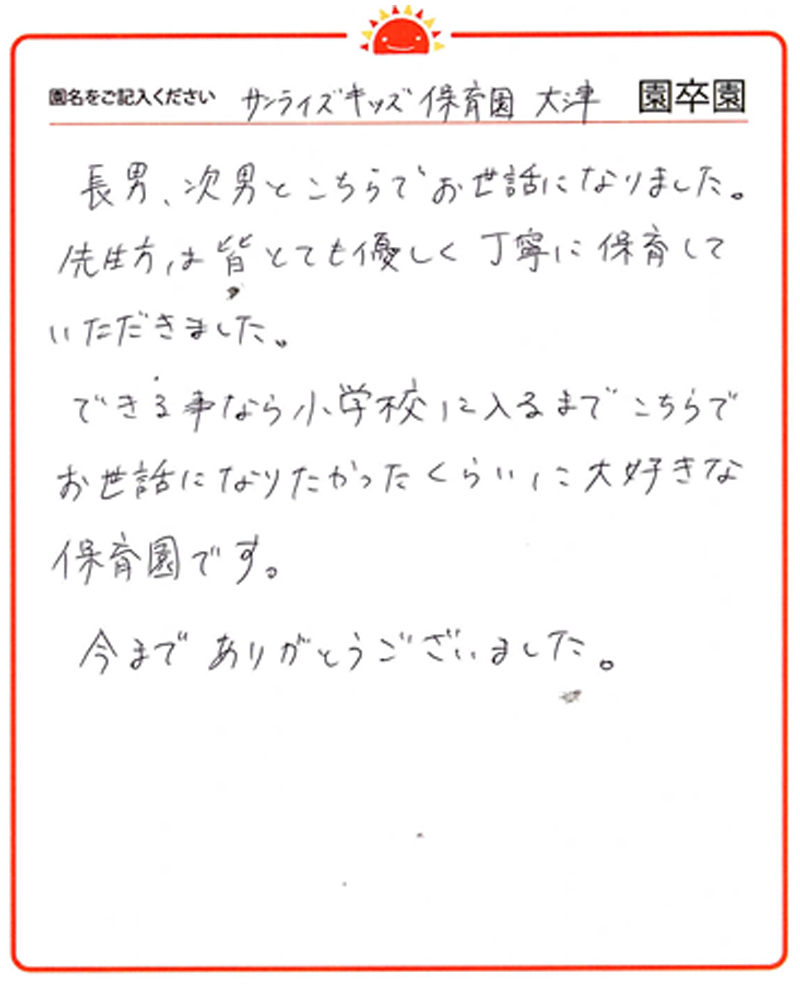 園名をご記入ください サンライズキッズ保育園 大津 園卒園
長男、次男とこちらでお世話になりました。
先生方は皆とても優しく丁寧に保育して
いただきました。
できる事なら小学校に入るまでこちらで
お世話になりたかったくらいに大好きな
保育園です。
今までありがとうございました。